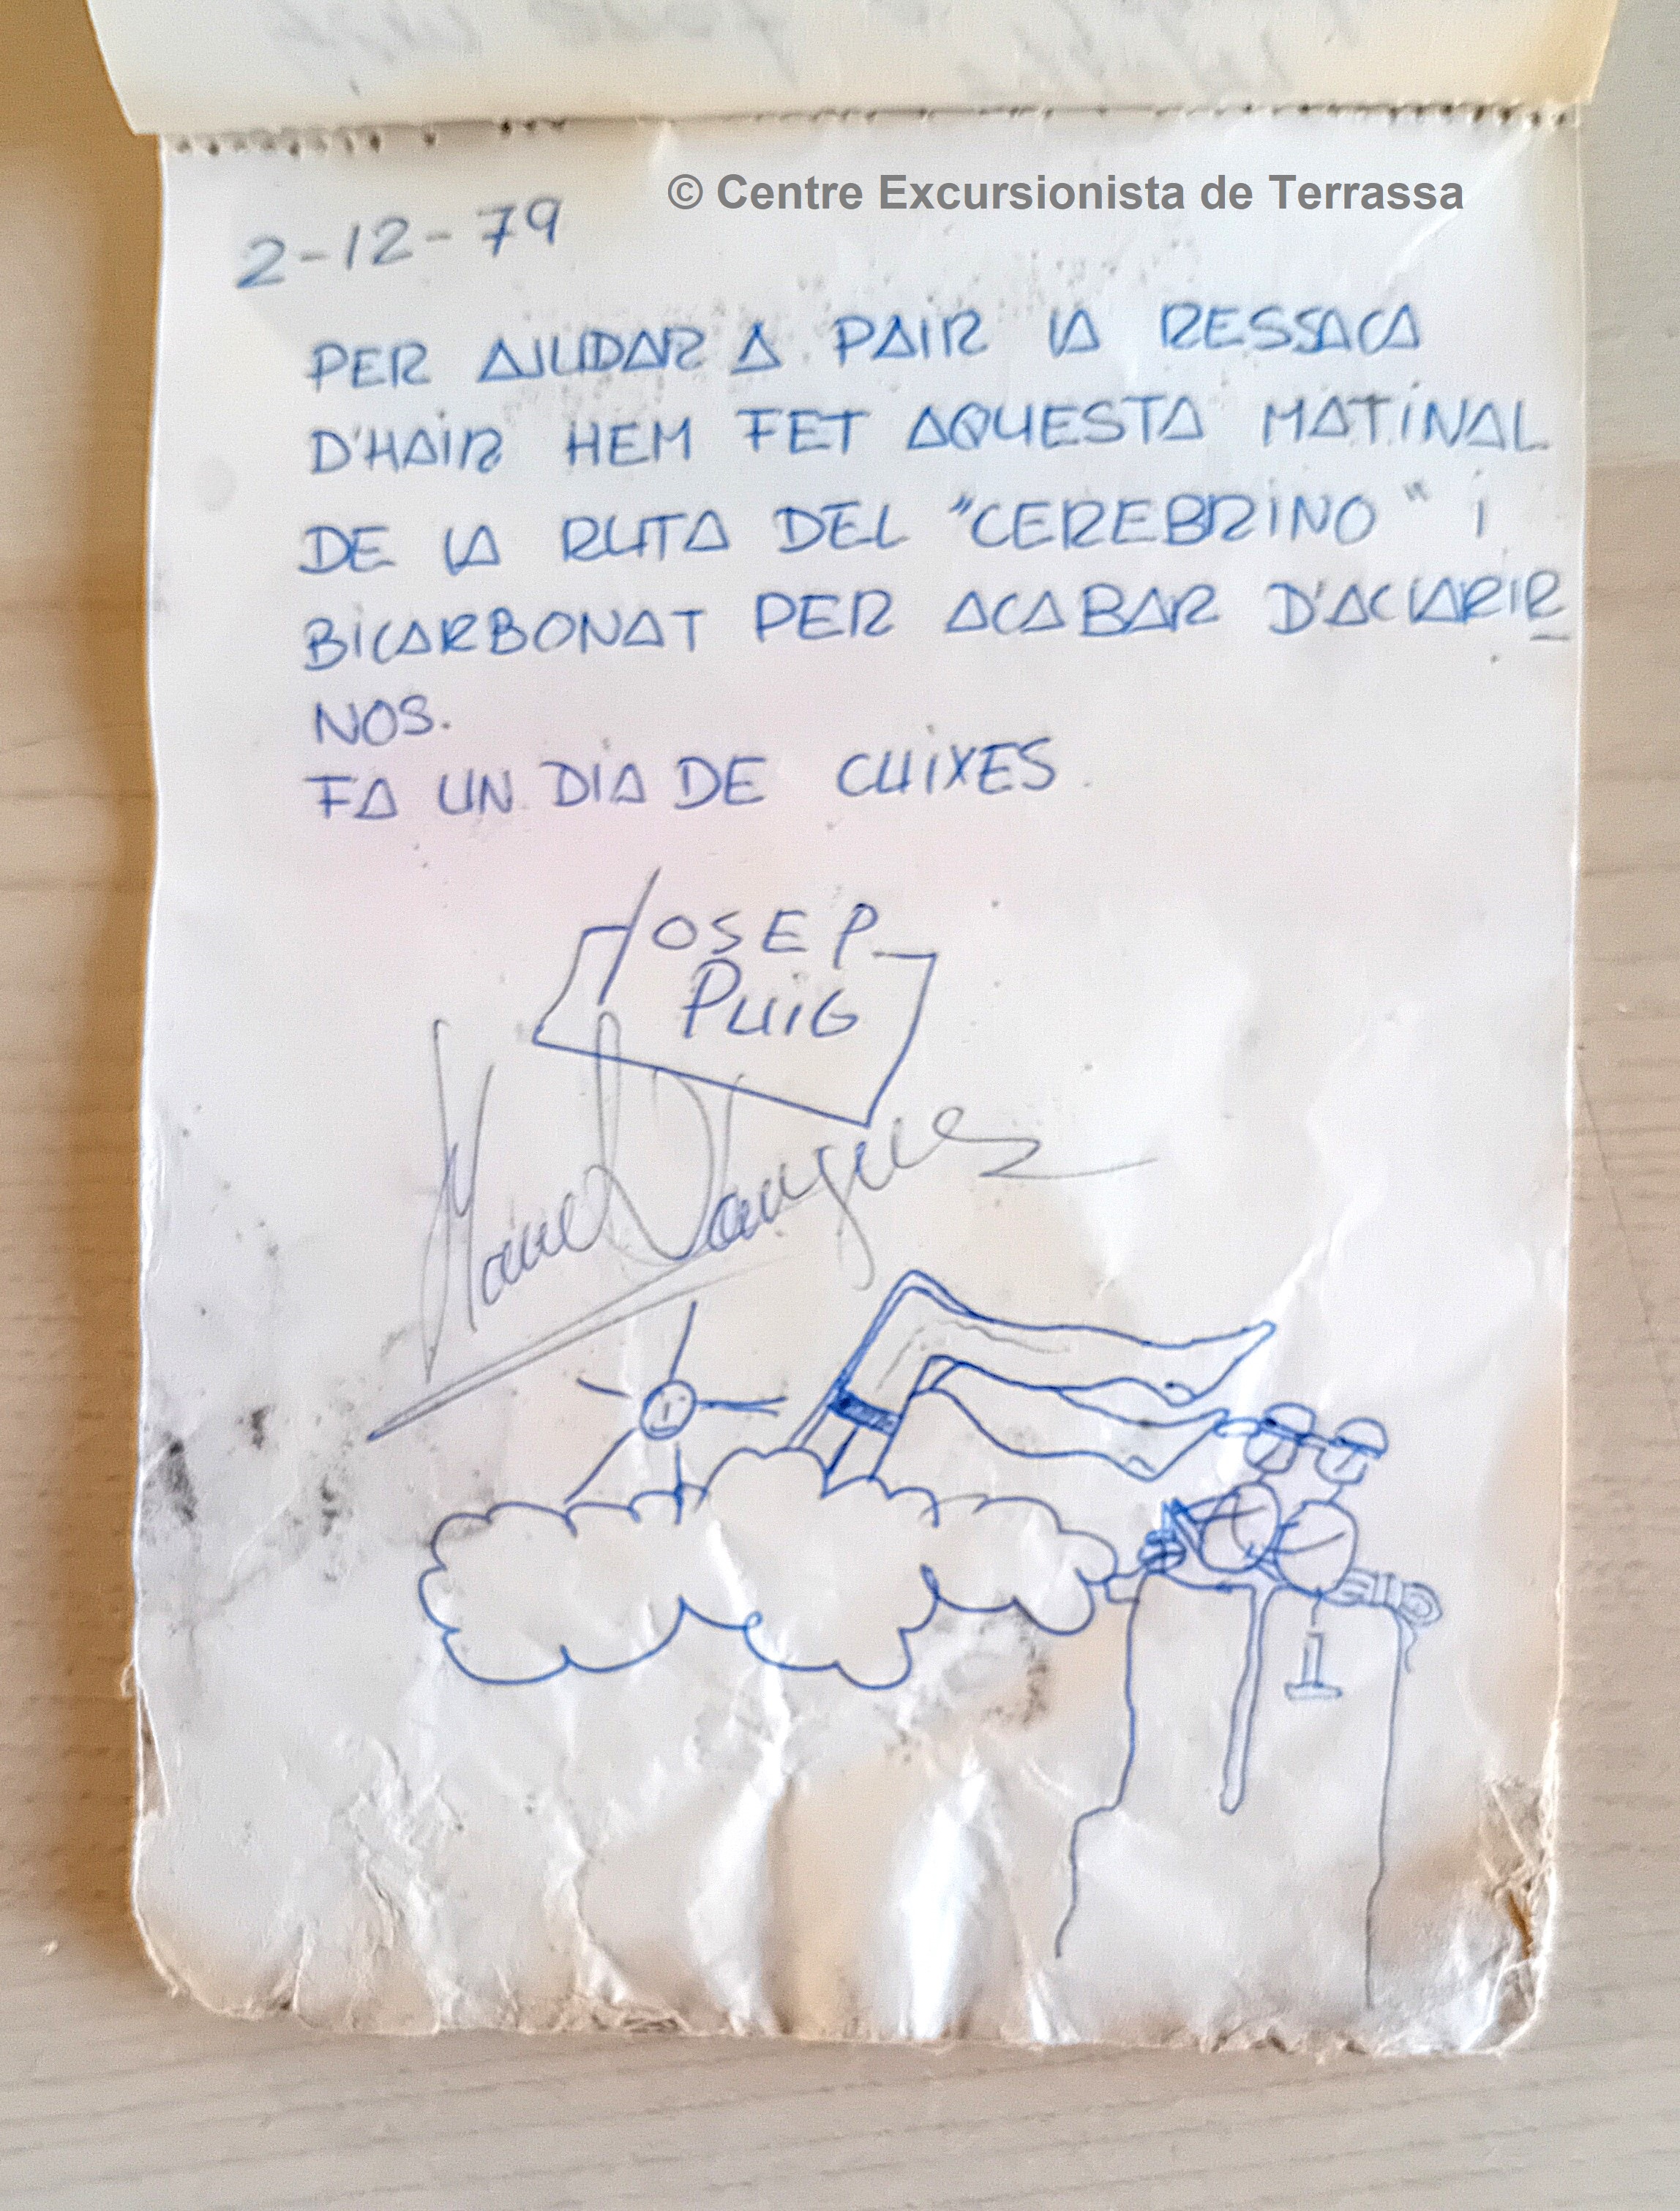 © Centre Excursionista de Terrassa
2-12-79
PER AJUDAR A PAIR LA RESSACA
D'HAIR HEM FET AQUESTA MATINAL
DE LA RUTA DEL "CEREBRINO" i
BICARBONAT PER ACABAR D'ACLARIR
NOS.
FA UN DIA DE CUIXES.
JOSEP
PUIG
Manel